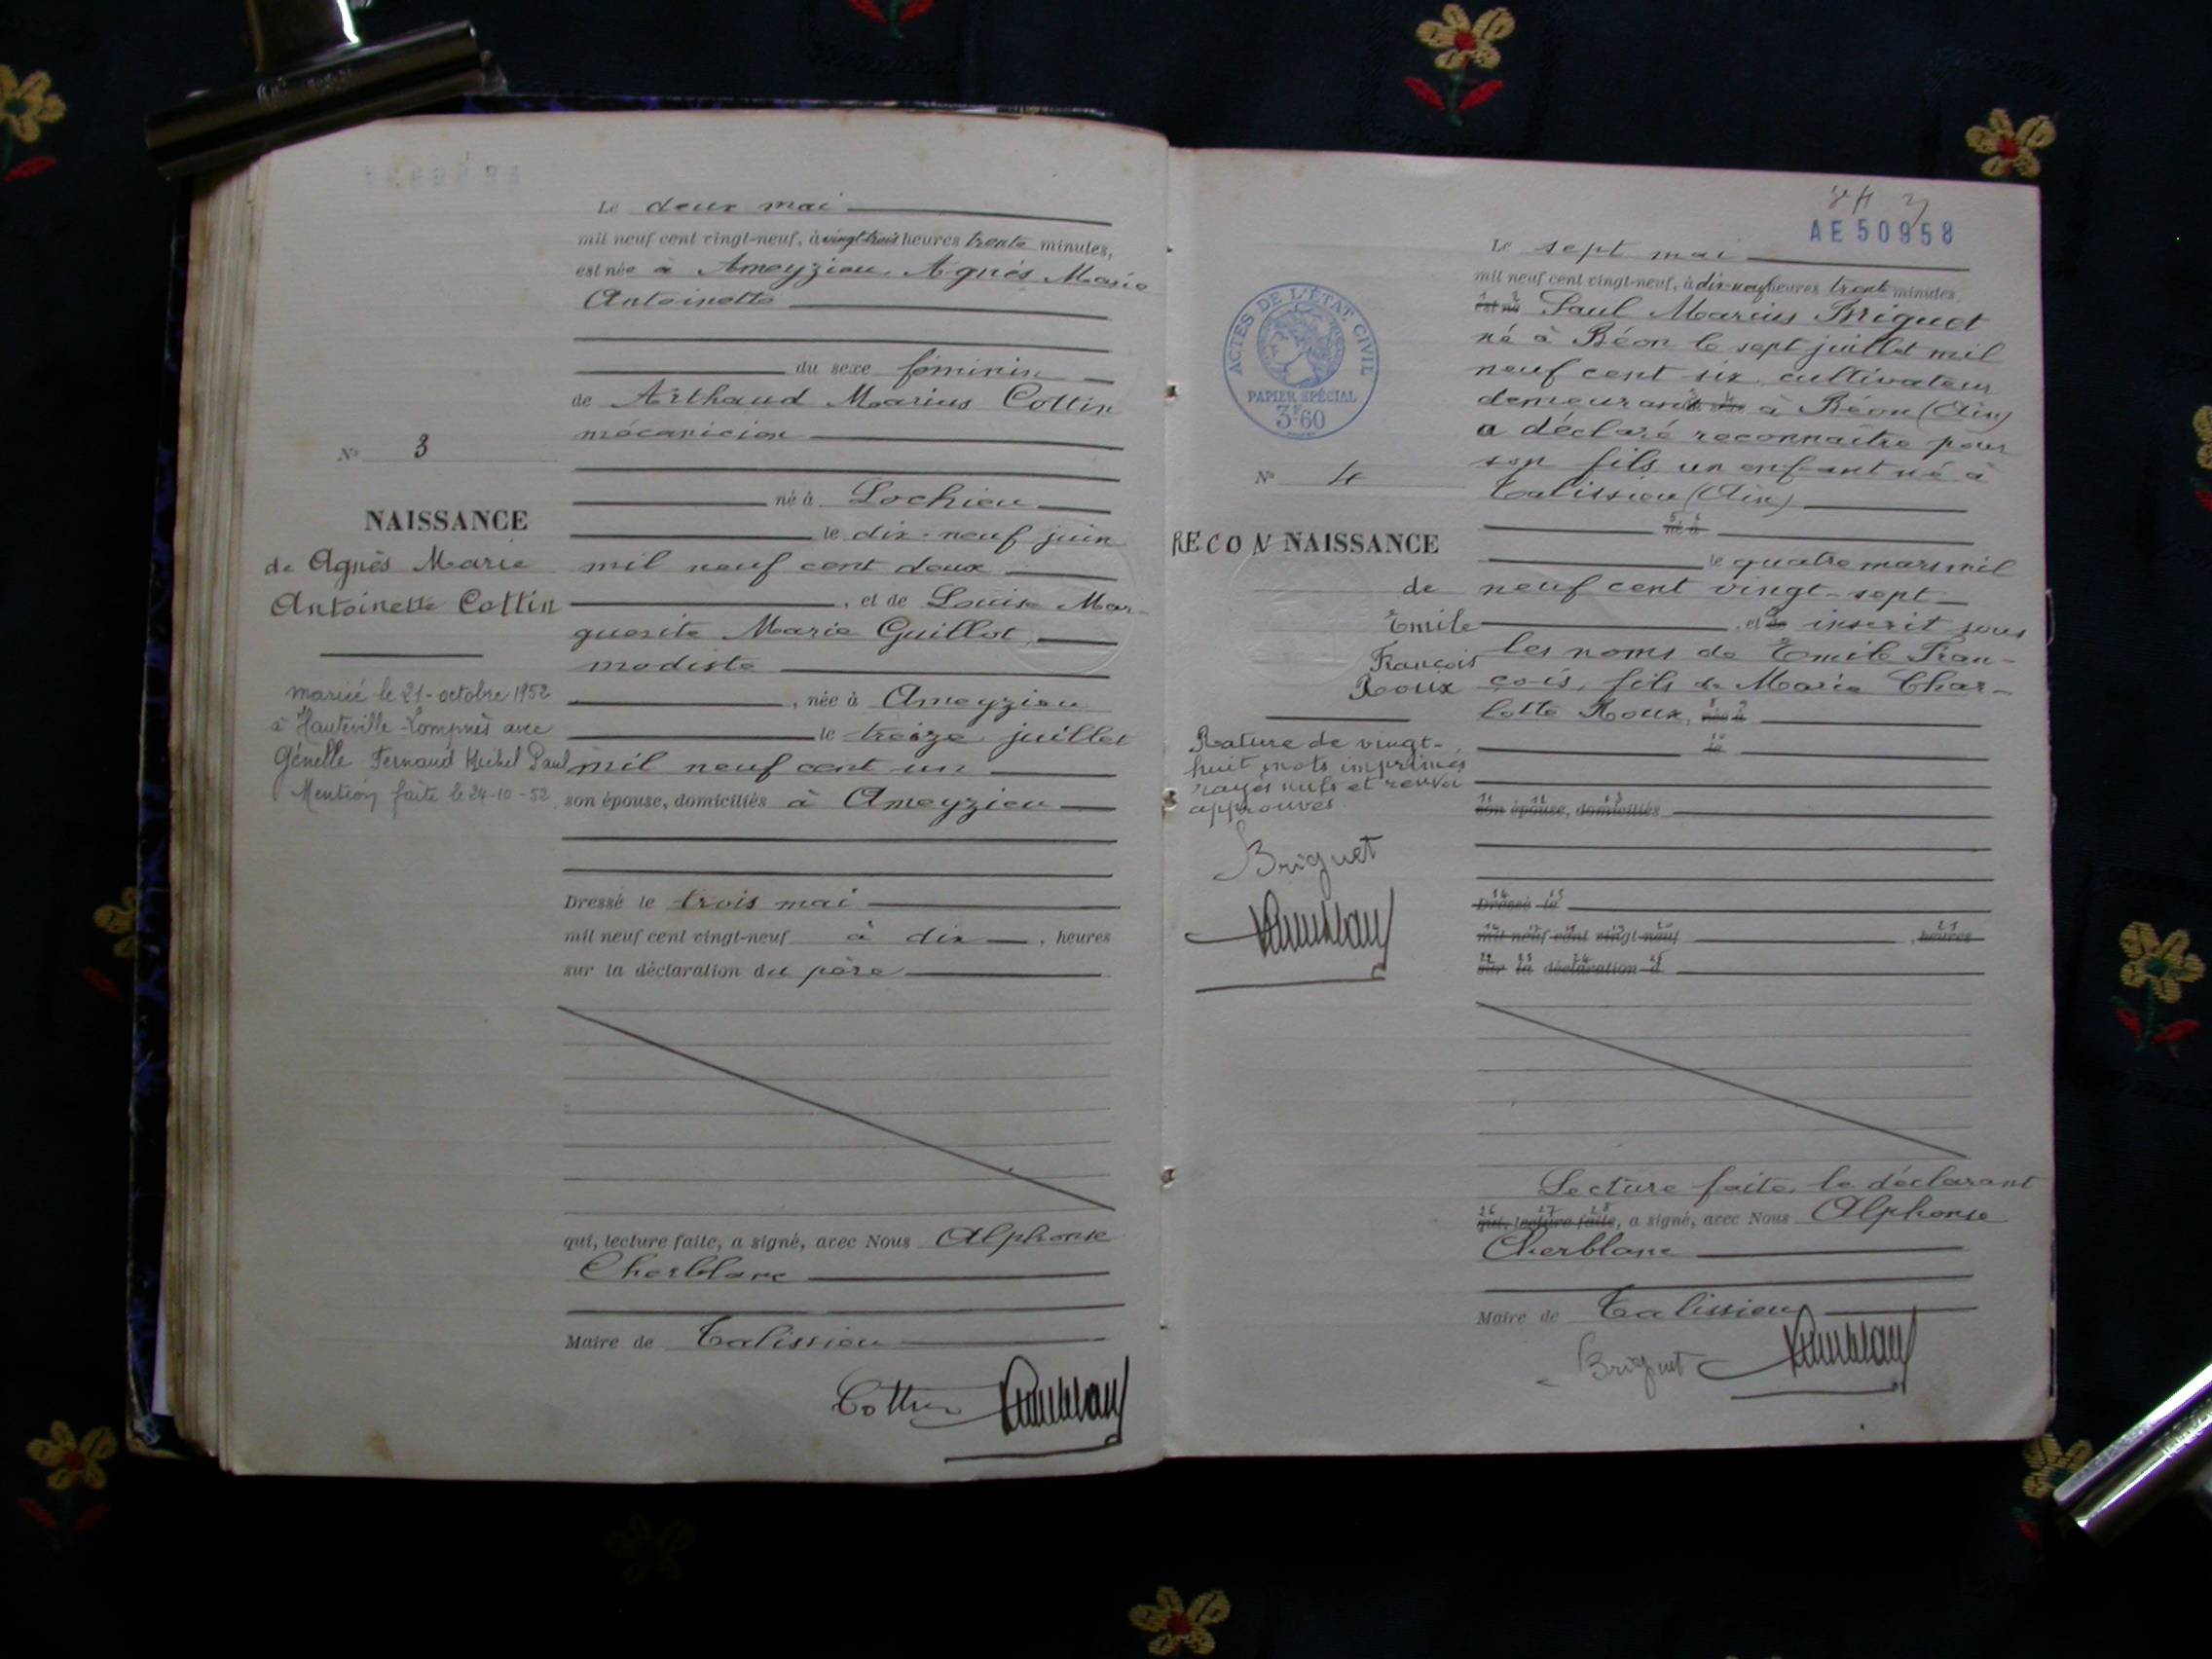 Le deux mai
mil neuf cent vingt-neuf, à vingt trois heures trente minutes,
est née à Ameyzieu Agnès Marie
Antoinette
du sexe féminin
de Arthaud Marius Cottin
mécanicien
né à Lochieu
le dix-neuf juin
mil neuf cent deux
, et de Louise Mar-
guerite Marie Guillot
modiste
, née à Ameyzieu
le treize juillet
mil neuf cent un
son épouse, domiciliés à Ameyzieu
Dressé le trois mai
mil neuf cent vingt-neuf à dix , heures
sur la déclaration du père
qui, lecture faite, a signé, avec Nous Alphonse
Cherblanc
Maire de Talissieu
Cottin
N° 3
NAISSANCE
de Agnès Marie
Antoinette Cottin
mariée le 21-octobre 1952
à Hauteville-Lompnès avec
Génelle Fernand Michel Paul
Mention faite le 24-10-52
AE 50958
Le sept mai
mil neuf cent vingt-neuf, à dix-neuf heures trente minutes
est né Paul Marius Briguet
né à Béon le sept juillet mil
neuf cent six cultivateur
demeurant à Béon (Ain)
a déclaré reconnaître pour
son fils un enfant né à
Talissieu (Ain)
né à
le quatre mars mil
neuf cent vingt-sept
, et de inscrit sous
les noms de Emile Fran-
çois, fils de Marie Char-
lotte Roux, née à
le
son épouse, domiciliés
Dressé le
mil neuf cent vingt-neuf , heures
sur la déclaration d
Lecture faite, le déclarant
qui, lecture faite, a signé, avec Nous Alphonse
Cherblanc
Maire de Talissieu
Briguet
ACTES DE L'ÉTAT CIVIL
PAPIER SPÉCIAL
3F60
N° 4
RECONNAISSANCE
de
Emile
François
Roux
Rature de vingt-
huit mots imprimés
rayés nuls et renvoi
approuvés
Briguet